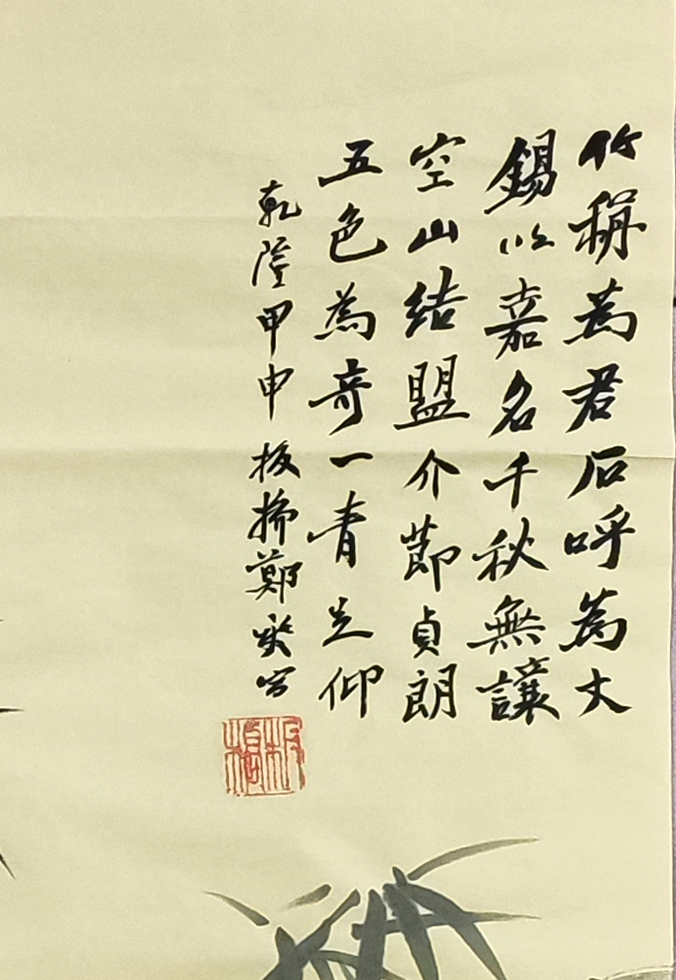 竹稱為君石呼為丈
錫以嘉名千秋無讓
空山結盟介節貞朗
五色為奇一青足仰
乾隆甲申板橋鄭燮寫
板橋